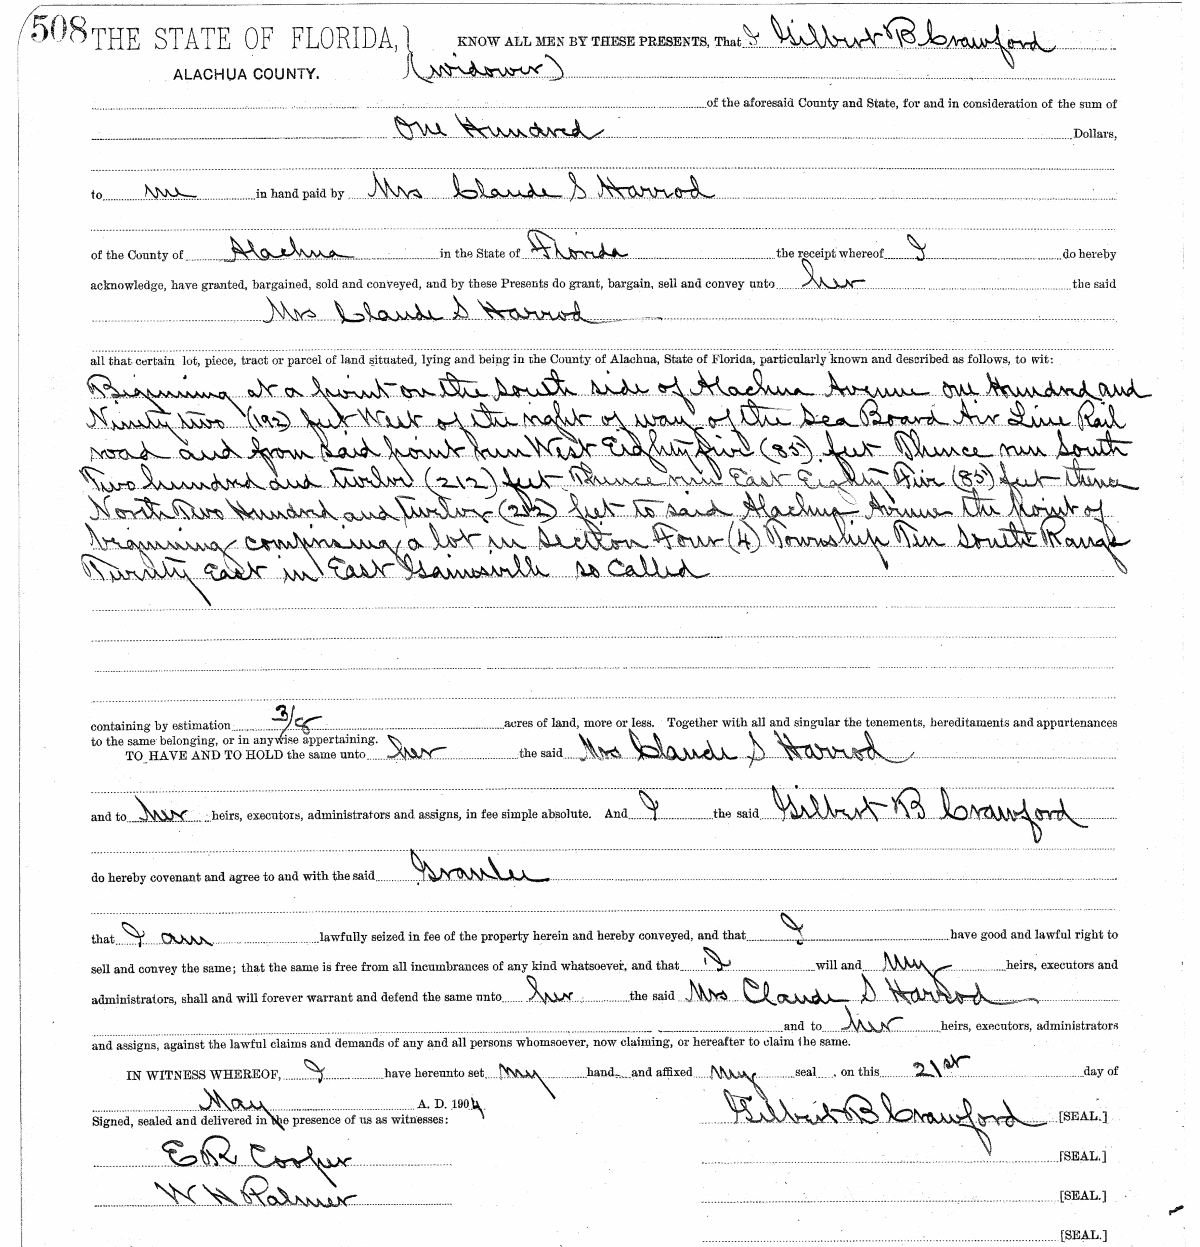 508 THE STATE OF FLORIDA, KNOW ALL MEN BY THESE PRESENTS, That I Gilbert B Crawford
ALACHUA COUNTY. (widower)
of the aforesaid County and State, for and in consideration of the sum of
One Hundred Dollars,
to me in hand paid by Mrs Claude S Harrod
of the County of Alachua in the State of Florida the receipt whereof I do hereby
acknowledge, have granted, bargained, sold and conveyed, and by these Presents do grant, bargain, sell and convey unto her the said
Mrs Claude S Harrod
all that certain lot, piece, tract or parcel of land situated, lying and being in the County of Alachua, State of Florida, particularly known and described as follows, to wit:
Biginning at a point on the South side of Alachua Avenue one Hundred and
Ninety two (192) feet West of the right of way of the Sea Board Air Line Rail
road and from said point run West Eighty five (85) feet Thence run South
Two hundred and twelve (212) feet Thence run East Eighty Five (85) feet thence
North Two Hundred and twelve (212) feet to said Alachua Avenue the point of
beginning comprising a lot in Section Four (4) Township Ten South Range
Twenty East in East Gainesville so called
containing by estimation 3/8 acres of land, more or less. Together with all and singular the tenements, hereditaments and appurtenances
to the same belonging, or in anywise appertaining.
TO HAVE AND TO HOLD the same unto her the said Mrs Claude S Harrod
and to her heirs, executors, administrators and assigns, in fee simple absolute. And I the said Gilbert B Crawford
do hereby covenant and agree to and with the said Grantee
that I am lawfully seized in fee of the property herein and hereby conveyed, and that I have good and lawful right to
sell and convey the same; that the same is free from all incumbrances of any kind whatsoever, and that I will and my heirs, executors and
administrators, shall and will forever warrant and defend the same unto her the said Mrs Claude S Harrod
and to her heirs, executors, administrators
and assigns, against the lawful claims and demands of any and all persons whomsoever, now claiming, or hereafter to claim the same.
IN WITNESS WHEREOF, I have hereunto set my hand and affixed my seal, on this 21st day of
May A. D. 1904 Gilbert B Crawford [SEAL.]
Signed, sealed and delivered in the presence of us as witnesses:
E R Cooper [SEAL.]
W H Palmer [SEAL.]
[SEAL.]